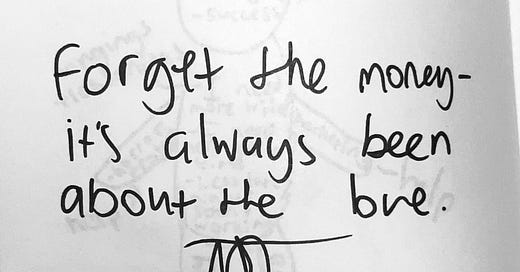 Forget the money-
it's always been
about the love.